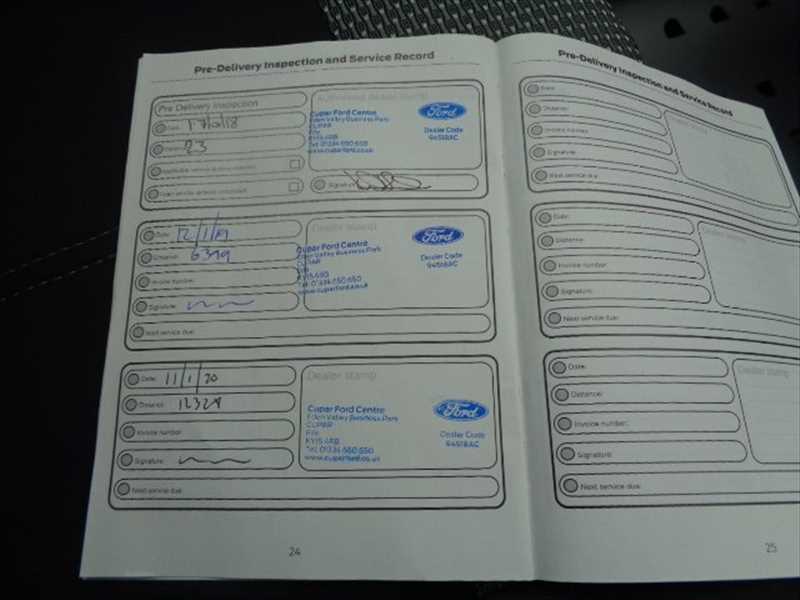 Pre-Delivery Inspection and Service Record
Pre Delivery Inspection
Date:
23
Signature
Cupar Ford Centre
Eden Valley Business Park
CUPAR
Fife
KY15 4RB
Tel. 01334 650 650
www.cuparford.co.uk
Ford
Dealer Code
94518AC
Date: 12/1/19
Distance:
Invoice number:
Signature:
Next service due:
Dealer stamp
Cupar Ford Centre
Eden Valley Business Park
CUPAR
Fife
KY15 4RB
Tel. 01334 650 650
www.cuparford.co.uk
Ford
Dealer Code
94518AC
Date: 11/1/20
Distance: 12329
Invoice number:
Signature:
Next service due:
Dealer stamp
Cupar Ford Centre
Eden Valley Business Park
CUPAR
Fife
KY15 4RB
Tel. 01334 650 650
www.cuparford.co.uk
Ford
Dealer Code
94518AC
24
Pre-Delivery Inspection and Service Record
Date:
Distance:
Invoice number:
Signature:
Next service due:
Date:
Distance:
Invoice number:
Signature:
Next service due:
Date:
Distance:
Invoice number:
Signature:
Next service due:
Dealer stamp
25